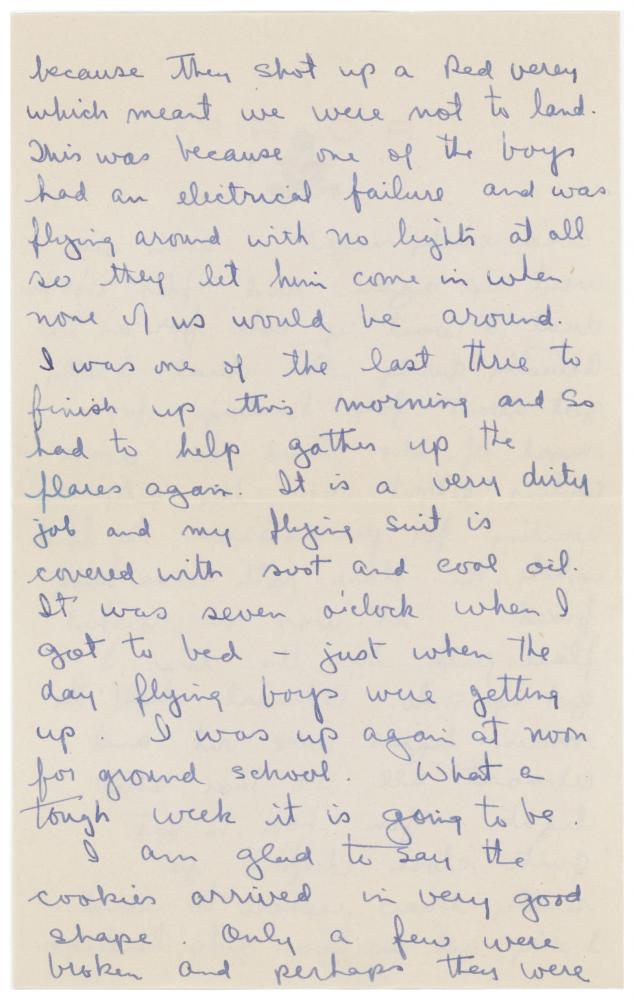 because they shot up a Red verey
which meant we were not to land.
This was because one of the boys
had an electrical failure and was
flying around with no lights at all
so they let him come in when
none of us would be around.
I was one of the last three to
finish up this morning and so
had to help gather up the
flares again. It is a very dirty
job and my flying suit is
covered with soot and coal oil.
It was seven o'clock when I
got to bed - just when the
day flying boys were getting
up. I was up again at noon
for ground school. What a
tough week it is going to be.
I am glad to say the
cookies arrived in very good
shape. Only a few were
broken and perhaps they were